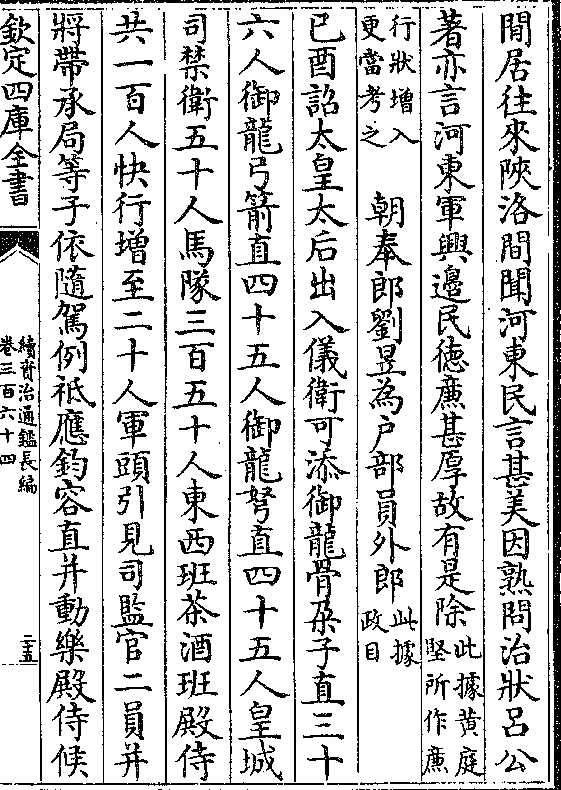 閒居往來陜洛間聞河東民言甚美因熟問治狀吕公
著亦言河東軍興邊民徳廉甚厚故有是除此據黄庭堅所作廉
行狀增入更當考之 朝奉郎劉昱為户部員外郎此據政目
已酉詔太皇太后出入儀衛可添御龍骨朶子直三十
六人御龍弓箭直四十五人御龍弩直四十五人皇城
司禁衛五十人馬隊三百五十人東西班茶酒班殿侍
共一百人快行增至二十人軍頭引見司監官二員并
將帶承局等子依隨駕例祗應鈞容直并動樂殿侍候
欽定四庫全書
續資治通鑑長編
卷三百六十四
二五